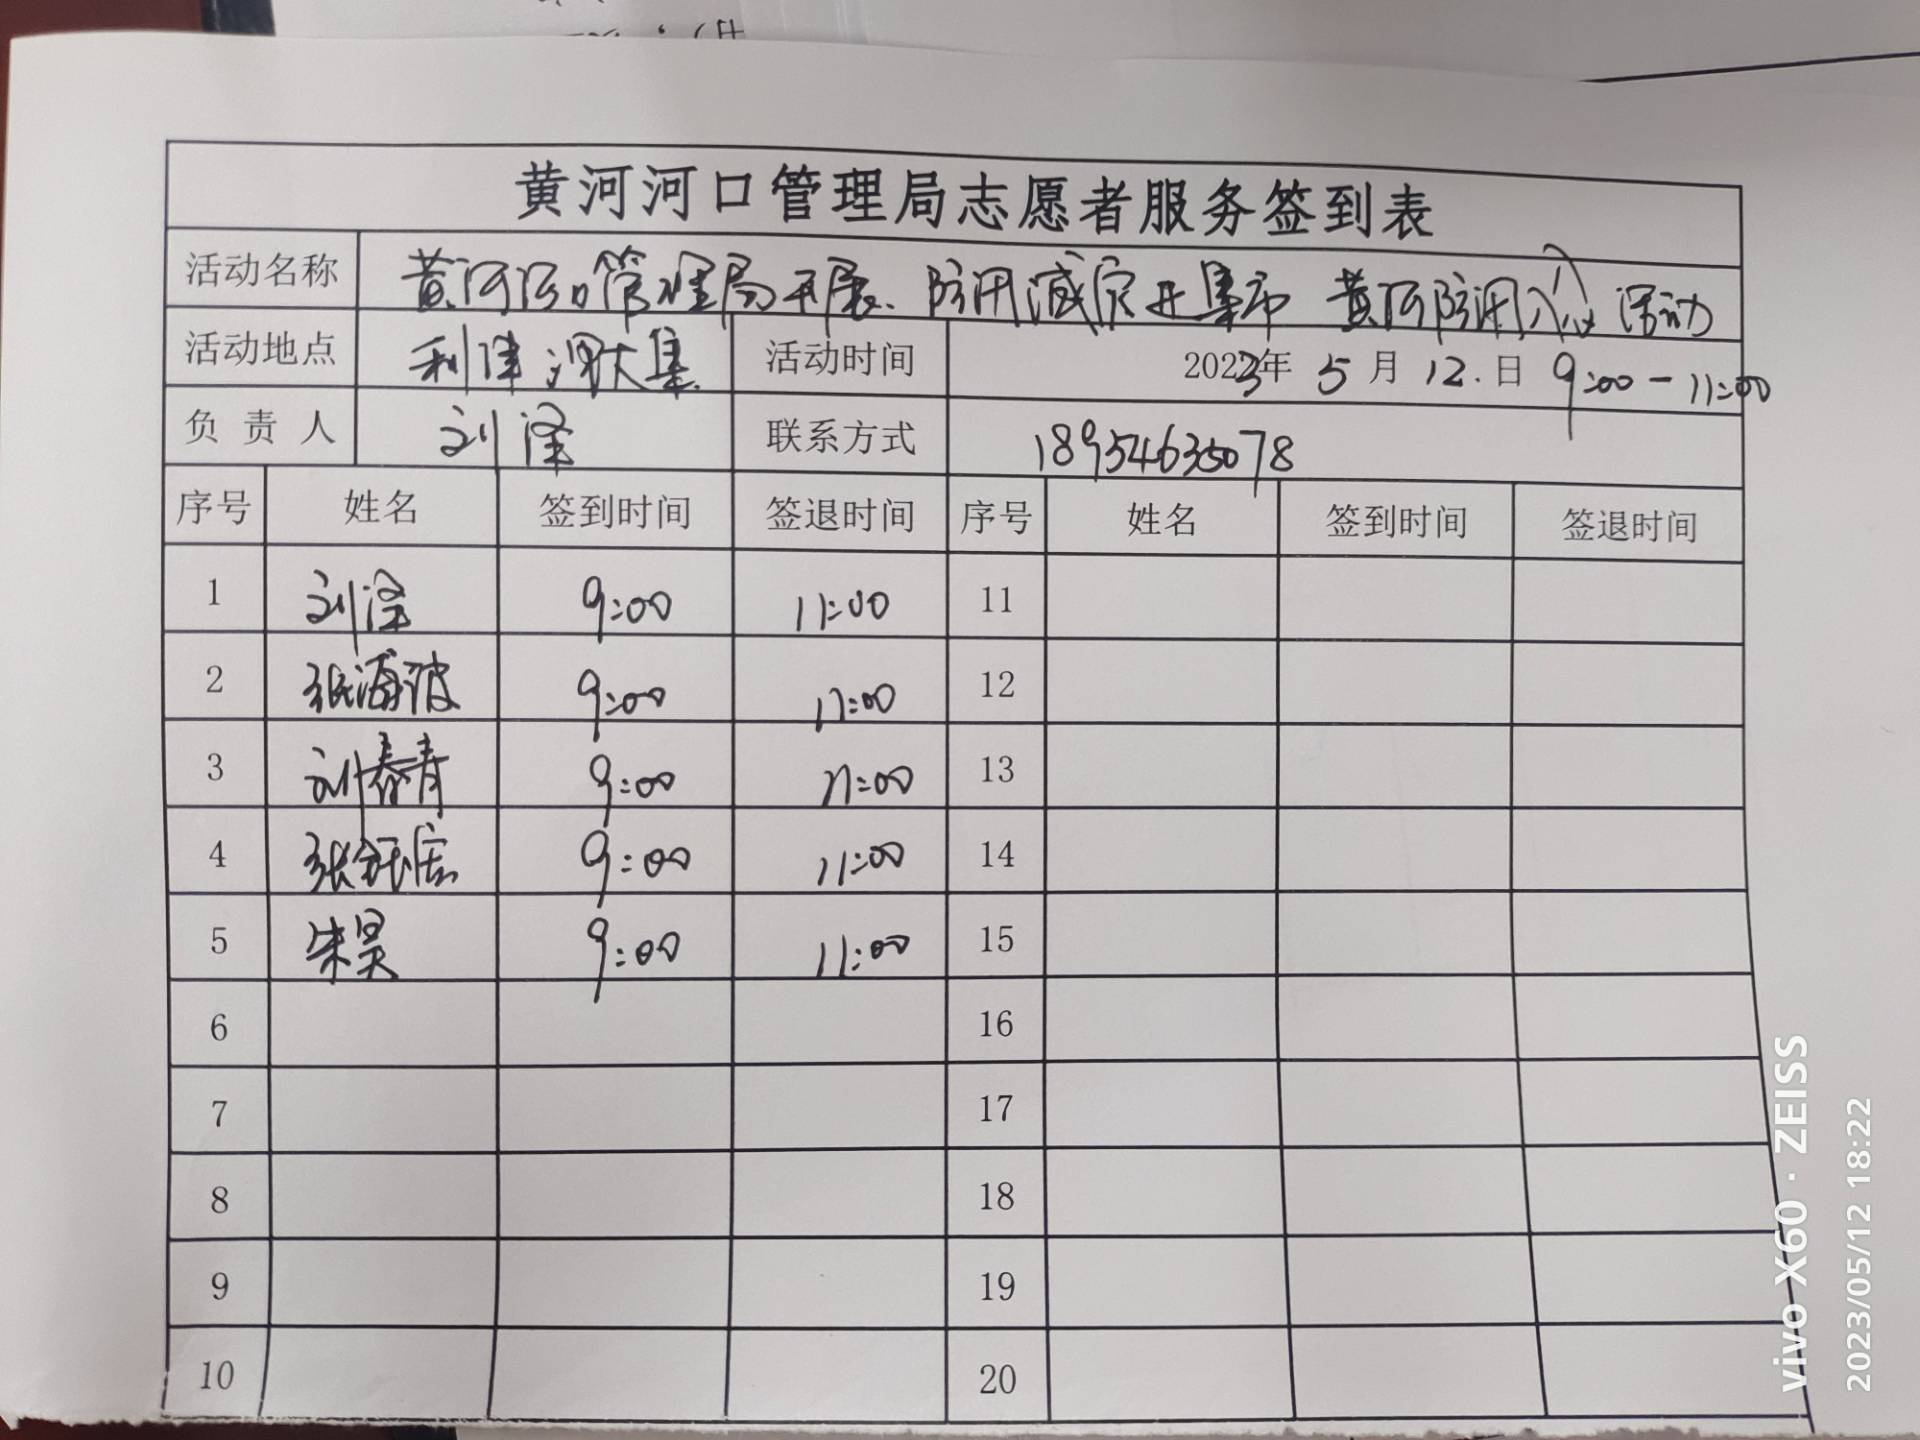 黄河河口管理局志愿者服务签到表
活动名称 黄河河口管理局开展防汛减灾进集市 黄河防汛入心 活动
活动地点 利津 大集 活动时间 2023年 5月12.日 9:00-11:00
负责人 刘泽 联系方式 18954635078
序号 姓名 签到时间 签退时间 序号 姓名 签到时间 签退时间
1 刘泽 9:00 11:00 11
2 张海波 9:00 11:00 12
3 刘春青 9:00 11:00 13
4 张 9:00 11:00 14
5 朱昊 9:00 11:00 15
6 16
7 17
8 18
9 19
10 20
vivo X60 · ZEISS
2023/05/12 18:22